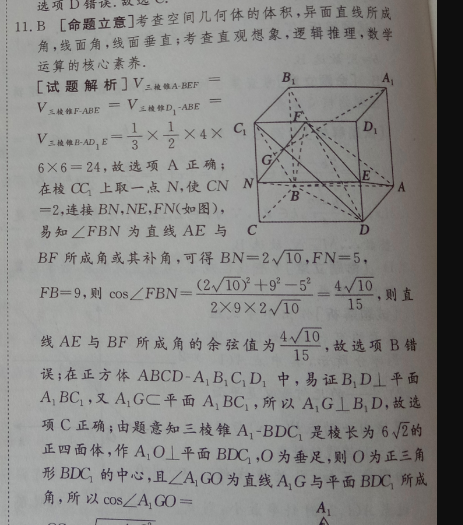 选项 D 错误.故选 C.
11.B [命题立意]考查空间几何体的体积,异面直线所成
角,线面角,线面垂直;考查直观想象,逻辑推理,数学
运算的核心素养.
[试题解析]V三棱锥A-BEF =
V三棱锥F-ABE = V三棱锥D₁-ABE =
V三棱锥B-AD₁E = 1/3 × 1/2 × 4 ×
6×6=24,故选项 A 正确;
在棱 CC₁ 上取一点 N,使 CN
=2,连接 BN,NE,FN(如图),
易知∠FBN 为直线 AE 与
B₁
A₁
F
C₁
D₁
G
N
E
B
A
C
D
BF 所成角或其补角,可得 BN=2√10,FN=5,
FB=9,则 cos∠FBN=((2√10)²+9²-5²)/(2×9×2√10)=4√10/15,则直
线 AE 与 BF 所成角的余弦值为 4√10/15,故选项 B 错
误;在正方体 ABCD-A₁B₁C₁D₁ 中,易证 B₁D⊥平面
A₁BC₁,又 A₁G⊂平面 A₁BC₁,所以 A₁G⊥B₁D,故选
项 C 正确;由题意知三棱锥 A₁-BDC₁ 是棱长为 6√2的
正四面体,作 A₁O⊥平面 BDC₁,O 为垂足,则 O 为正三角
形 BDC₁ 的中心,且∠A₁GO 为直线 A₁G 与平面 BDC₁ 所成
角,所以 cos∠A₁GO=
A₁